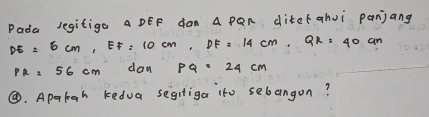 Pada segitiga Δ DEF dan Δ PQR diketahui panjang
DE = 6 cm, EF = 10 cm, DF = 14 cm. QR = 40 cm
PR = 56 cm dan PQ = 24 cm
@. Apakah kedua segitiga itu sebangun?